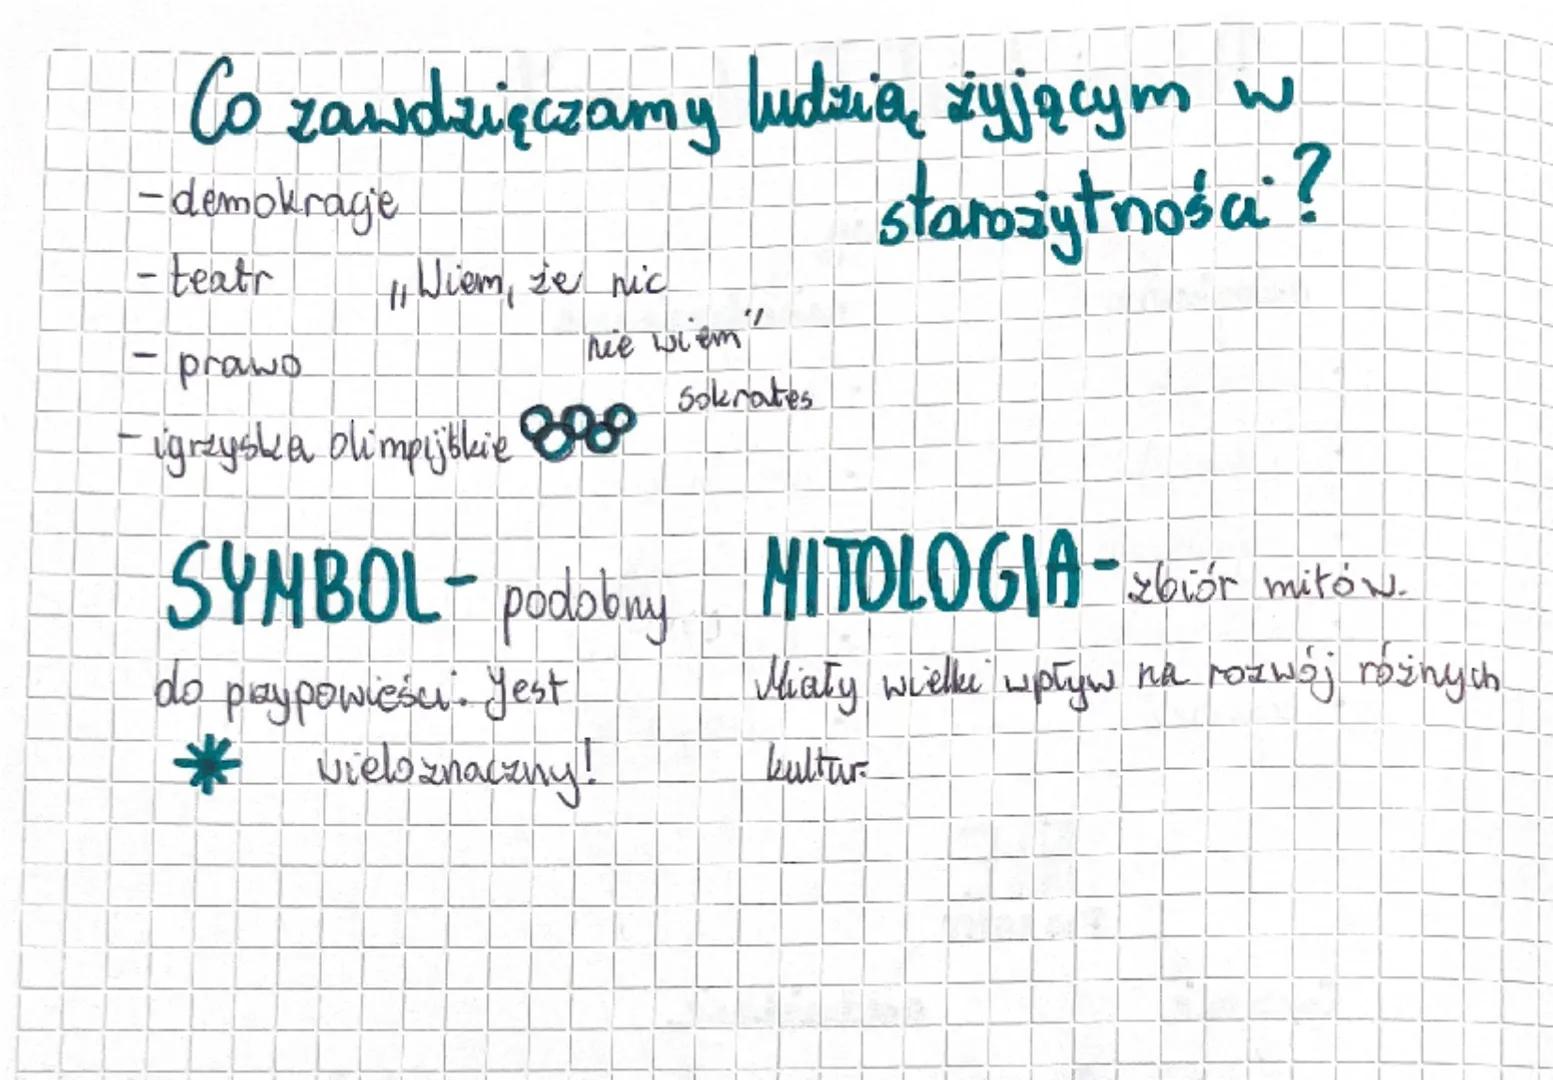 Co zawdzięczamy ludzią żyjącym w
starożytności?
- demokracje
- teatr
„Wiem, że nic
nie wiem”
sokrates
- prawo
- igrzyska olimpijskie
SYMBOL - podobny
do przypowieści. Jest
* wieloznaczny!
MITOLOGIA - zbiór mitów.
Miały wielki wpływ na rozwój różnych
kultur.